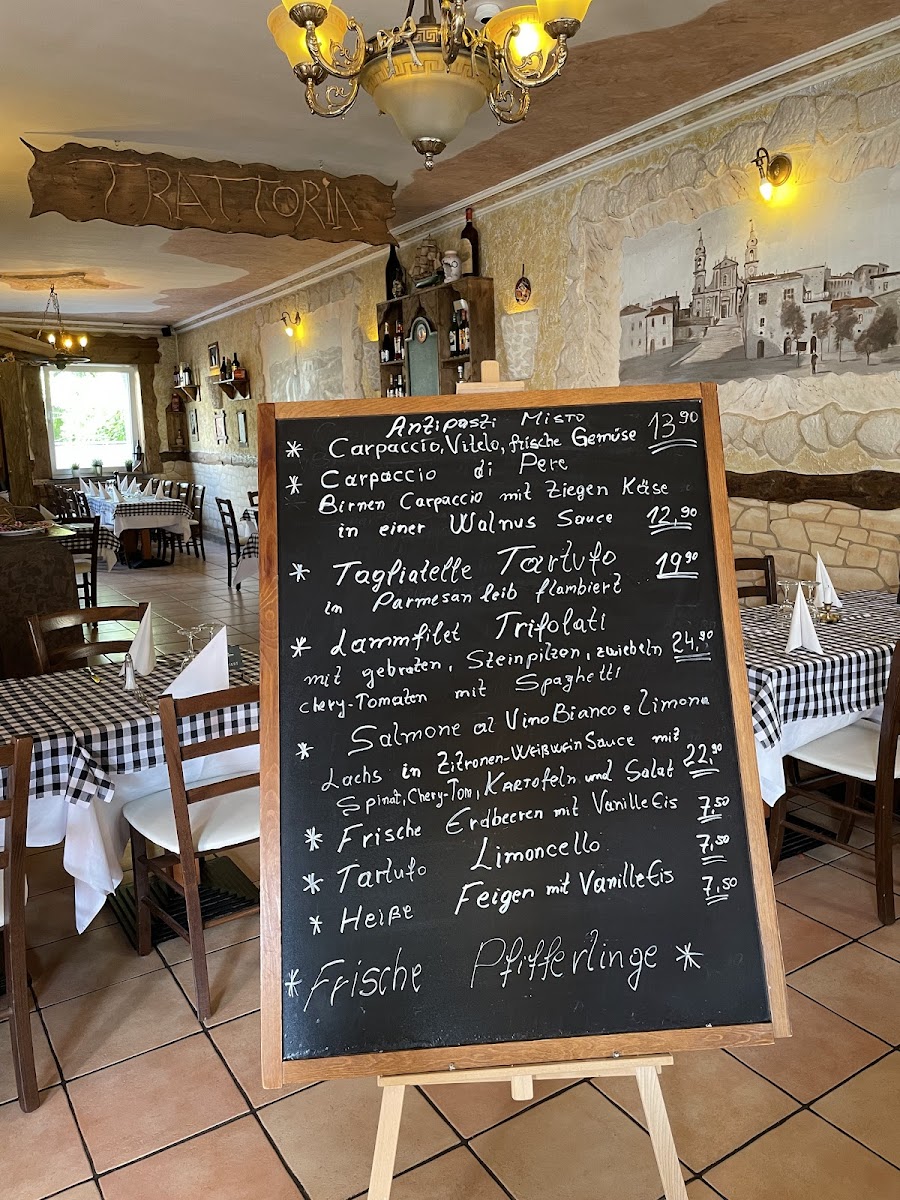 TRATTORIA
Antipasti Misto
* Carpaccio, Vitelo, frische Gemüse 13,90
* Carpaccio di Pere
Birnen Carpaccio mit Ziegen Käse
in einer Walnus Sauce 12,90
* Tagliatelle Tartufo 19,90
in Parmesan leib flambiert
* Lammfilet Trifolati
mit gebraten, Steinpilzen, zwiebeln 24,90
chery-Tomaten mit Spaghetti
* Salmone al Vino Bianco e Limone
Lachs in Zitronen-Weißwein Sauce mit
Spinat, Chery-Tom, Kartofeln und Salat 22,90
* Frische Erdbeeren mit Vanille Eis 7,50
* Tartufo Limoncello 7,50
* Heiße Feigen mit Vanille Eis 7,50
* Frische Pfifferlinge *